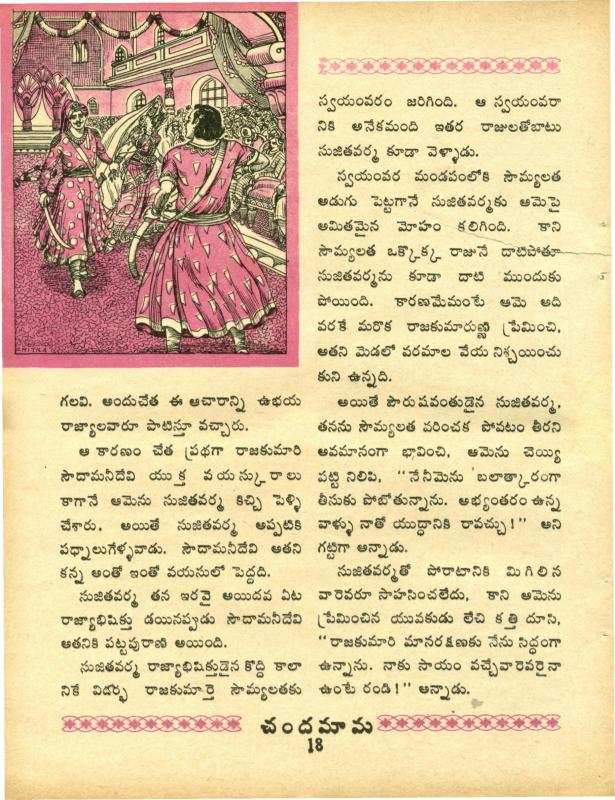 గలవి. అందుచేత ఈ ఆచారాన్ని ఉభయ
రాజ్యాలవారూ పాటిస్తూ వచ్చారు.
ఆ కారణం చేత ప్రథగా రాజకుమారి
సౌదామనీదేవి యుక్త వయస్కురాలు
కాగానే ఆమెను సుజితవర్మ కిచ్చి పెళ్ళి
చేశారు. అయితే సుజితవర్మ అప్పటికి
పధ్నాలుగేళ్ళవాడు. సౌదామనీదేవి అతని
కన్న అంతో ఇంతో వయసులో పెద్దది.
సుజితవర్మ తన ఇరవై అయిదవ ఏట
రాజ్యాభిషిక్తు డయినప్పుడు సౌదామనీదేవి
అతనికి పట్టపురాణి అయింది.
సుజితవర్మ రాజ్యాభిషిక్తుడైన కొద్ది కాలా
నికే విదర్భ రాజకుమార్తె సౌమ్యలతకు
స్వయంవరం జరిగింది. ఆ స్వయంవరా
నికి అనేకమంది ఇతర రాజులతోబాటు
సుజితవర్మ కూడా వెళ్ళాడు.
స్వయంవర మండపంలోకి సౌమ్యలత
అడుగు పెట్టగానే సుజితవర్మకు ఆమెపై
అమితమైన మోహం కలిగింది. కాని
సౌమ్యలత ఒక్కొక్క రాజునే దాటిపోతూ
సుజితవర్మను కూడా దాటి ముందుకు
పోయింది. కారణమేమంటే ఆమె అది
వరకే మరొక రాజకుమారుణ్ణి ప్రేమించి,
అతని మెడలో వరమాల వేయ నిశ్చయించు
కుని ఉన్నది.
అయితే పౌరుషవంతుడైన సుజితవర్మ,
తనను సౌమ్యలత వరించక పోవటం తీరని
అవమానంగా భావించి, ఆమెను చెయ్యి
పట్టి నిలిపి, "నేనీమెను బలాత్కారంగా
తీసుకు పోబోతున్నాను. అభ్యంతరం ఉన్న
వాళ్ళు నాతో యుద్ధానికి రావచ్చు!" అని
గట్టిగా అన్నాడు.
సుజితవర్మతో పోరాటానికి మిగిలిన
వారెవరూ సాహసించలేదు, కాని ఆమెను
ప్రేమించిన యువకుడు లేచి కత్తి దూసి,
"రాజకుమారి మానరక్షణకు నేను సిద్ధంగా
ఉన్నాను. నాకు సాయం వచ్చేవారెవరైనా
ఉంటే రండి!" అన్నాడు.
చందమామ
18